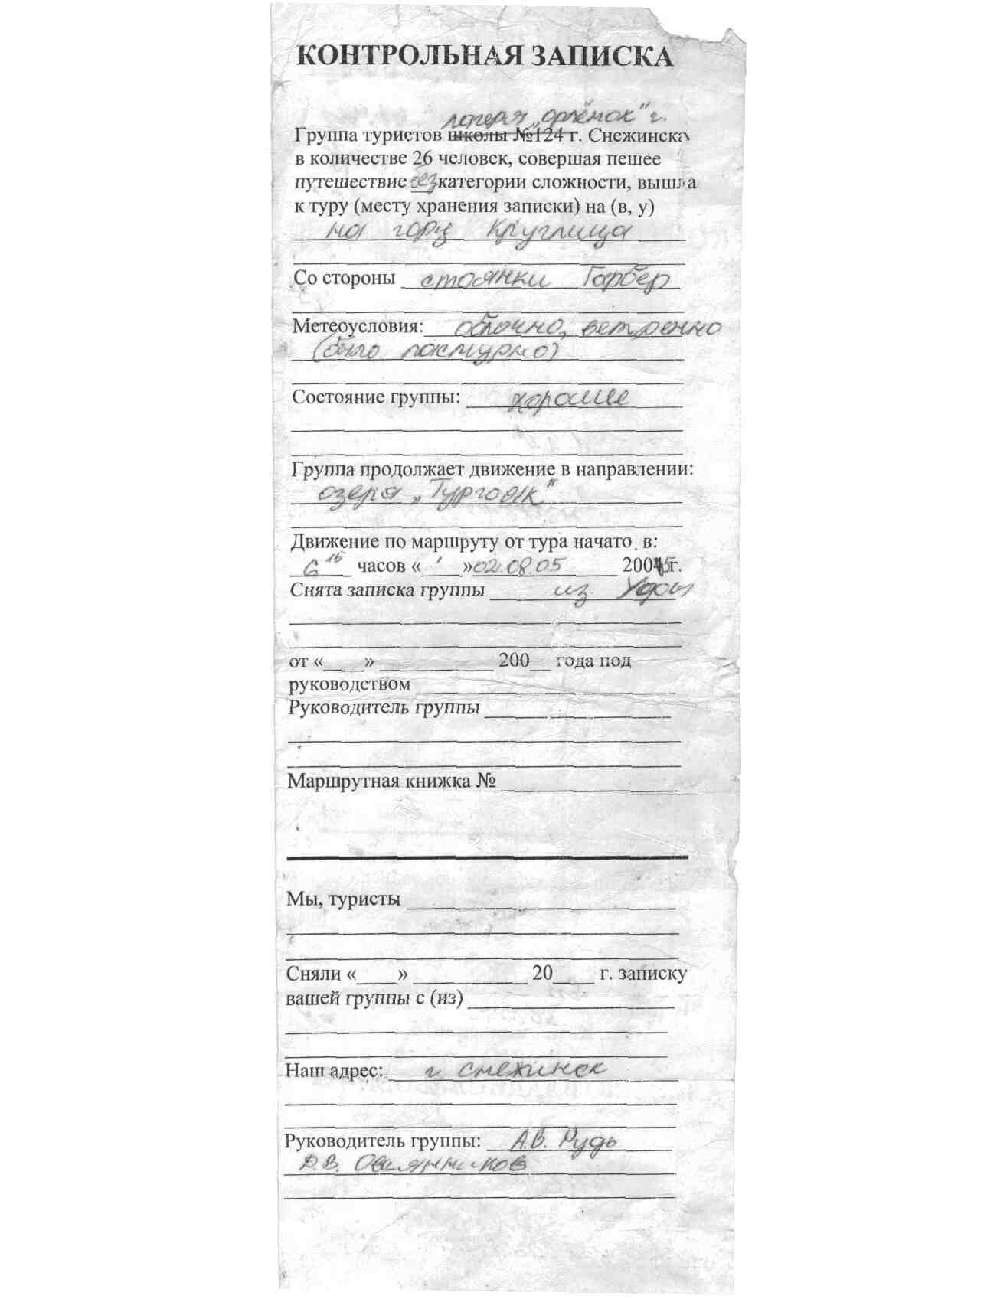 КОНТРОЛЬНАЯ ЗАПИСКА
лагеря „орлёнок" г.
Группа туристов школы №124 г. Снежинска
в количестве 26 человек, совершая пешее
путешествие без категории сложности, вышла
к туру (месту хранения записки) на (в, у)
на гору Круглица
Со стороны стоянки Горбер
Метеоусловия: облачно, ветренно
(было пасмурно)
Состояние группы: хорошее
Группа продолжает движение в направлении:
озера „Тургояк"
Движение по маршруту от тура начато в:
6 16 часов « » 02.08.05 2005 г.
Снята записка группы из Уфы
от « » 200 года под
руководством
Руководитель группы
Маршрутная книжка №
Мы, туристы
Сняли « » 20 г. записку
вашей группы с (из)
Наш адрес: г. Снежинск
Руководитель группы: А.В. Рудь
В.В. Овсянников